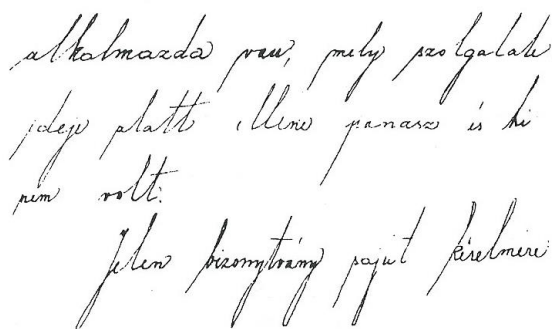 alkalmazva van, mely szolgálati
ideje alatt ellene panasz és hi
nem volt.
Jelen bizonyitvány saját kérelmére